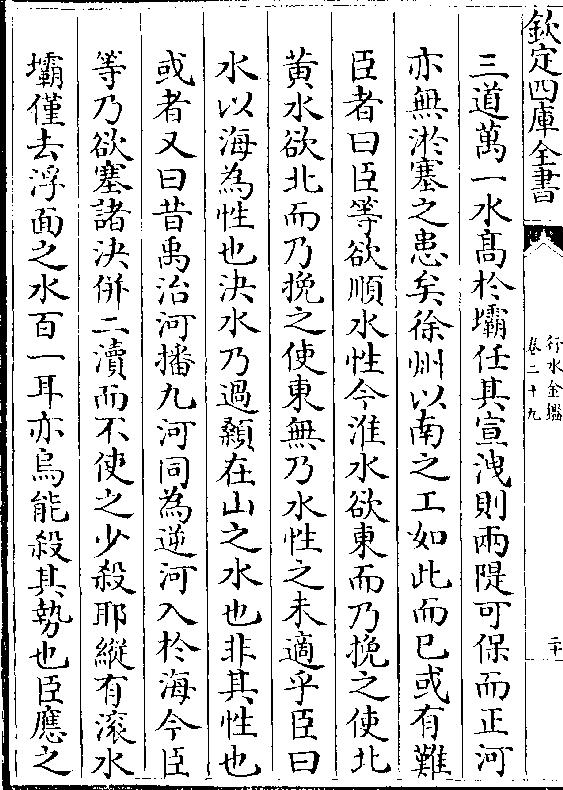 欽定四庫全書
行水金鑑
卷二十九
二十
三道萬一水髙於壩任其宣洩則兩隄可保而正河
亦無淤塞之患矣徐州以南之工如此而已或有難
臣者曰臣等欲順水性今淮水欲東而乃挽之使北
黄水欲北而乃挽之使東無乃水性之未適乎臣曰
水以海為性也決水乃過顙在山之水也非其性也
或者又曰昔禹治河播九河同為逆河入於海今臣
等乃欲塞諸決併二瀆而不使之少殺耶縱有滚水
壩僅去浮面之水百一耳亦烏能殺其勢也臣應之